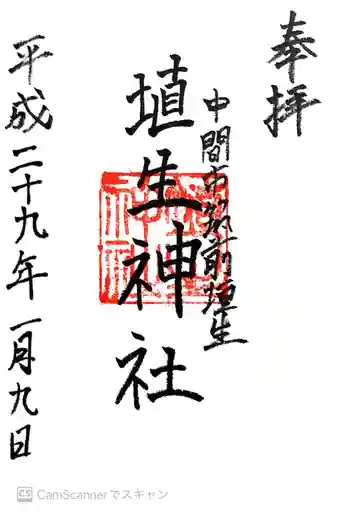 奉拝
中間市筑前垣生
埴生神社
平成二十九年一月九日
CamScannerでスキャン